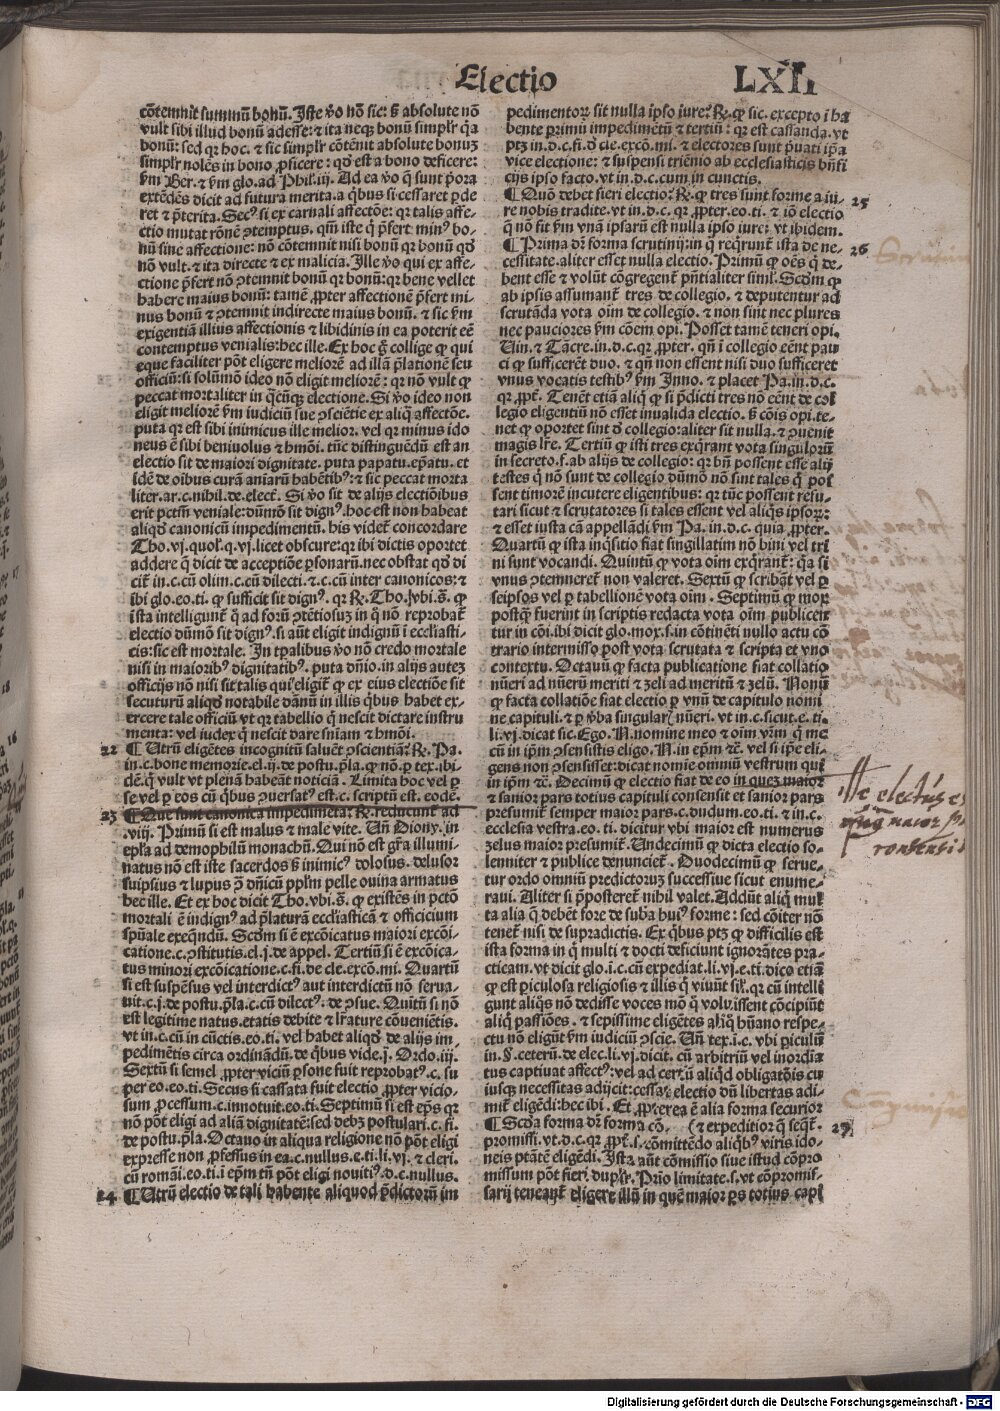 Electio LXII
cōtemnit summū bonū. Iste v̄o nō sic: sȝ absolute nō
vult sibi illud bonū adesse: ⁊ ita neqȝ bonū simplr̄ q̄a
bonū: sed qr hoc. ⁊ sic simplr̄ cōtēnit absolute bonuȝ
simplr̄ nolēs in bono ꝓficere: qd̄ est a bono deficere:
ẜm Ber. ⁊ ẜm glo. ad Phil. iij. Ad ea v̄o q̄ sunt ꝑora
extēdēs dicit ad futura merita. a qbus si cessaret ꝑde
ret ⁊ p̄terita. Secꝰ si ex carnali affectōe: qr talis affe-
ctio mutat rōnē ↄtemptus. qm̄ iste q̄ p̄fert minꝰ bo-
nū sine affectione: nō cōtemnit nisi bonū qr bonū qd̄
nō vult. ⁊ ita directe ⁊ ex malicia. Ille v̄o qui ex affe-
ctione p̄fert nō ↄtemnit bonū qr bonū: qr bene vellet
habere maius bonū: tamē ꝓpter affectionē p̄fert mi-
nus bonū ⁊ ↄtemnit indirecte maius bonū. ⁊ sic ẜm
exigentiā illius affectionis ⁊ libidinis in ea poterit eē
contemptus venialis: hec ille. Ex hoc g̊ collige ꝙ qui
eque faciliter pōt eligere meliorē ad illā p̄lationē seu
officiū: si solūmō ideo nō eligit meliorē: qr nō vult ꝙ
peccat mortaliter in q̄cūqȝ electione. Si v̄o ideo non
eligit meliorē ẜm iudiciū sue ↄsciētie ex aliq̄ affectōe.
puta qr est sibi inimicus ille melior. vel qr minus ido
neus ē sibi beniuolus ⁊ hmōi. tūc distinguēdū est an
electio sit de maiori dignitate. puta papatu. ep̄atu. et
idē de oibus curā aniarū habētibꝰ: ⁊ sic peccat morta
liter. ar. c. nihil. de. elect. Si v̄o sit de alijs electiōibus
erit pctm̄ veniale: dūmō sit dignꝰ. hoc est non habeat
aliqd̄ canonicū impedimentū. his videt̄ concordare
Tho. vj. quol. q. vj. licet obscure: qr ibi dictis oportet
addere q̄ dicit de acceptiōe ꝑsonarū. nec obstat qd̄ di
cit̄ in. c. cū olim. c. cū dilecti. ⁊. c. cū inter canonicos: ⁊
ibi glo. eo. ti. ꝙ sufficit sit dignꝰ. qr ℞. Tho. vbi. s̄. ꝙ
ista intelligunt̄ q̄ ad forū ↄtētiosuȝ in q̄ nō reprobat̄
electio dūmō sit dignꝰ. si aūt eligit indignū i eccl̄iasti-
cis: sic est mortale. In tp̄alibus v̄o nō credo mortale
nisi in maioribꝰ dignitatibꝰ. puta dn̄io. in alijs auteȝ
officijs nō nisi sit talis qui eligit̄ ꝙ ex eius electiōe sit
secuturū aliqd̄ notabile dānū in illis qbus habet ex-
ercere tale officiū vt qr tabellio q̄ nescit dictare instru
menta: vel iudex q̄ nescit dare sn̄iam ⁊ hmōi.
22 ¶ Utrū eligētes incognitū saluēt ↄscientiā: ℞. Pa.
in. c. bone memorie. el. ij. de postu. p̄la. ꝙ nō. ꝑ tex. ibi-
dē. q̄ vult vt plenā habeāt noticiā. Limita hoc vel ꝑ
se vel ꝑ eos cū qbus ↄuersatꝰ est. c. scriptū est. eodē.
23 ¶ Que sunt canonica impedimēta: ℞. reducunt̄ ad
viij. Primū si est malus ⁊ male vite. Un̄ Diony. in
epl̄a ad demophilū monachū. Qui nō est gr̄a illumi
natus nō est iste sacerdos sȝ inimicꝰ dolosus. delusor
suipsius ⁊ lupus ↄ̄ dn̄icū ppl̄m pelle ouina armatus
hec ille. Et ex hoc dicit Tho. vbi. s̄. ꝙ existēs in pctō
mortali ē indignꝰ ad p̄laturā eccl̄iasticā ⁊ officicium
spūale exeqndū. Scd̄m si ē excōicatus maiori excōi
catione. c. ↄstitutis. el. j. de appel. Tertiū si ē excōica-
tus minori excōicatione. c. fi. de cle. excō. mi. Quartū
si est suspēsus vel interdictꝰ aut interdictū nō serua-
uit. c. j. de postu. p̄la. c. cū dilectꝰ. de ↄsue. Quītū si nō
est legitime natus. etatis debite ⁊ lr̄ature cōueniētis.
vt in. c. cū in cūctis. eo. ti. vel habet aliqd̄ de alijs im-
pedimētis circa ordinādū. de qbus vide. j. Ordo. iij.
Sextū si semel ꝓpter viciū ꝑsone fuit reprobatꝰ. c. su
per eo. eo. ti. Secus si cassata fuit electio ꝓpter vicio-
sum ꝓcessum. c. innotuit. eo. ti. Septimū si est ep̄s qr
nō pōt eligi ad aliā dignitatē: sed debȝ postulari. c. fi.
de postu. p̄la. Octauo in aliqua religione nō pōt eligi
expresse non ꝓfessus in ea. c. nullus. e. ti. li. vj. ⁊ cleri.
cū romāi. eo. ti. i ep̄m tn̄ pōt eligi nouitiꝰ. d. c. nullus.
24 ¶ Utrū electio de tali habente aliquod p̄dictorū im
pedimentoꝝ sit nulla ipso iure: ℞. ꝙ sic. excepto i ha
bente primū impedimētū ⁊ tertiū: qr est cassanda. vt
ptȝ in. d. c. fi. d̄ cle. excō. mi. ⁊ electores sunt p̄uati ip̄a
vice electione: ⁊ suspensi triēnio ab ecclesiasticis bn̄fi
cijs ipso facto. vt in. d. c. cum in cunctis.
¶ Quō debet fieri electio: ℞. ꝙ tres sunt forme a iu- 25
re nobis tradite. vt in. d. c. qr ꝓpter. eo. ti. ⁊ iō electio
q̄ nō fit ẜm vnā ipsarū est nulla ipso iure: vt ibidem.
¶ Prima dr̄ forma scrutinij: in q̄ reqrunt̄ ista de ne- 26
cessitate. aliter esset nulla electio. Primū ꝙ oēs q̄ de-
bent esse ⁊ volūt cōgregent̄ p̄ntialiter simul. Scd̄m ꝙ
ab ipsis assumant̄ tres de collegio. ⁊ deputentur ad
scrutāda vota oim de collegio. ⁊ non sint nec plures
nec pauciores ẜm cōem opi. Posset tamē teneri opi.
Uin. ⁊ Tācre. in. d. c. qr ꝓpter. qn̄ i collegio eēnt pau
ci ꝙ sufficerēt duo. ⁊ qn̄ non essent nisi duo sufficeret
vnus vocatis testibꝰ ẜm Inno. ⁊ placet Pa. in. d. c.
qr ꝓpt̄. Tenēt etiā aliq̄ ꝙ si p̄dicti tres nō eēnt de col
legio eligentiū nō esset inualida electio. sȝ cōis opi. te-
net ꝙ oportet sint d̄ collegio: aliter sit nulla. ⁊ ↄuenit
magis lr̄e. Tertiū ꝙ isti tres exqrant vota singuloꝝ
in secreto. s. ab alijs de collegio: qr bn̄ possent esse alij
testes q̄ nō sunt de collegio dūmō nō sint tales q̄ pos
sent timorē incutere eligentibus: qr tūc possent refu-
tari sicut ⁊ scrutatores si tales essent vel aliqs ipsoꝝ:
⁊ esset iusta cā appellādi ẜm Pa. in. d. c. quia ꝓpter.
Quartū ꝙ ista inqsitio fiat singillatim nō bini vel tri
ni sunt vocandi. Quintū ꝙ vota oim exqrant̄: q̄a si
vnus ↄtemneret̄ non valeret. Sextū ꝙ scribāt̄ vel ꝑ
seipsos vel ꝑ tabellionē vota oim. Septimū ꝙ mox
postq̄ fuerint in scriptis redacta vota oim publicen
tur in cōi. ibi dicit glo. mox. s. in cōtinēti nullo actu cō
trario intermisso post vota scrutata ⁊ scripta et vno
contextu. Octauū ꝙ facta publicatione fiat collatio
nūeri ad nūerū meriti ⁊ zeli ad meritū ⁊ zelū. Nonū
ꝙ facta collatiōe fiat electio ꝑ vnū de capitulo nomi
ne capituli. ⁊ ꝑ v̄ba singularꝭ nūeri. vt in. c. sicut. e. ti.
li. vj. dicat sic. Ego. N. nomine meo ⁊ oim vr̄m q̄ me
cū in ip̄m ↄsensistis eligo. N. in ep̄m ⁊c̄. vel si ip̄e eli-
gens non ↄsensisset: dicat nomie omniū vestrum qui
in ip̄m ⁊c̄. Decimū ꝙ electio fiat de eo in queȝ maior
⁊ sanior pars totius capituli consensit et sanior pars
presumit̄ semper maior pars. c. dudum. eo. ti. ⁊ in. c.
ecclesia vestra. eo. ti. dicitur vbi maior est numerus
zelus maior presumit̄. Undecimū ꝙ dicta electio so-
lenniter ⁊ publice denunciet̄. Duodecimū ꝙ serue-
tur ordo omniū predictoruȝ successiue sicut enume-
raui. Aliter si p̄posteret̄ nihil valet. Addūt aliq̄ mul
ta alia q̄ debēt fore de suba huiꝰ forme: sed cōiter nō
tenet̄ nisi de supradictis. Ex qbus ptȝ ꝙ difficilis est
ista forma in q̄ multi ⁊ docti deficiunt ignorātes pra-
cticam. vt dicit glo. i. c. cū expediat. li. vj. e. ti. dico etiā
ꝙ est ꝑiculosa religiosis ⁊ illis q̄ viuūt sil̄. qr cū intelli
gunt aliqs nō dedisse voces mō q̄ voluissent cōcipiūt
aliq̄ passiōes. ⁊ sepissime eligētes aliq̄ hūano respe-
ctu nō eligūt ẜm iudiciū ↄscie. Un̄ tex. i. c. vbi ꝑiculū
in. §. ceterū. de elec. li. vj. dicit. cū arbitriū vel inordia
tus captiuat affectꝰ: vel ad certū aliqd obligatōis cu
iusqȝ necessitas adijcit: cessat electio dū libertas adi-
mit̄ eligēdi: hec ibi. Et ꝓpterea ē alia forma securior
¶ Scd̄a forma dr̄ forma cō- (⁊ expeditior q̄ seqt̄. 27
promissi. vt. d. c. qr ꝓpt̄. s. cōmittēdo aliqbꝰ viris ido-
neis ptātē eligēdi. Ista aūt cōmissio siue istud cōpro
missum pōt fieri duplr̄. Prio limitate. s. vt cōpromis-
sarij teneant̄ eligere illū in quē maior ꝑs totius capi